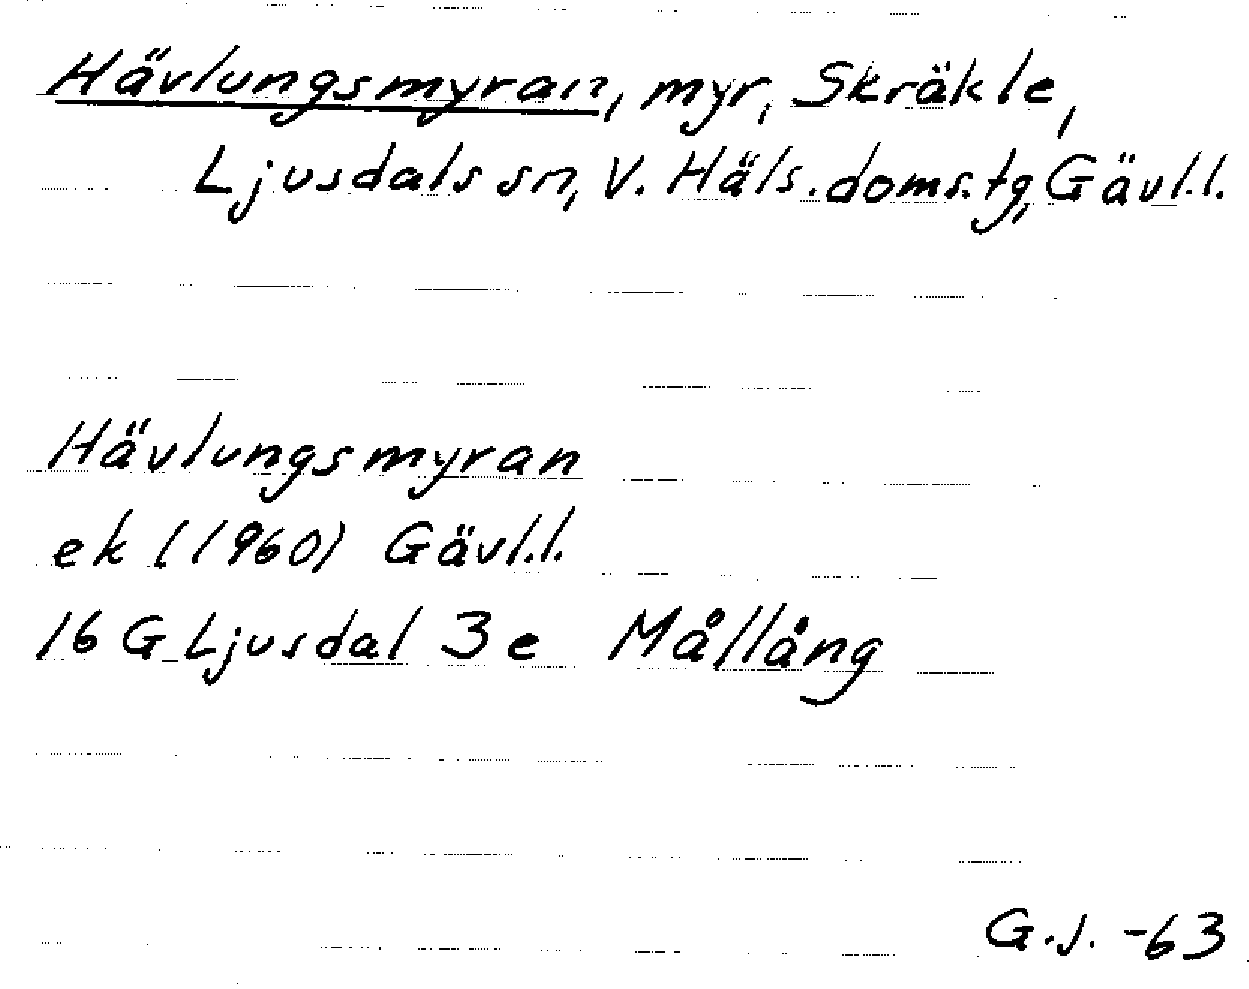 Hävlungsmyran, myr, Skräkle,
Ljusdals sn, V. Häls. doms. tg, Gävl.l.
Hävlungsmyran
ek (1960) Gävl.l.
16 G Ljusdal 3 e Mållång
G.J. -63